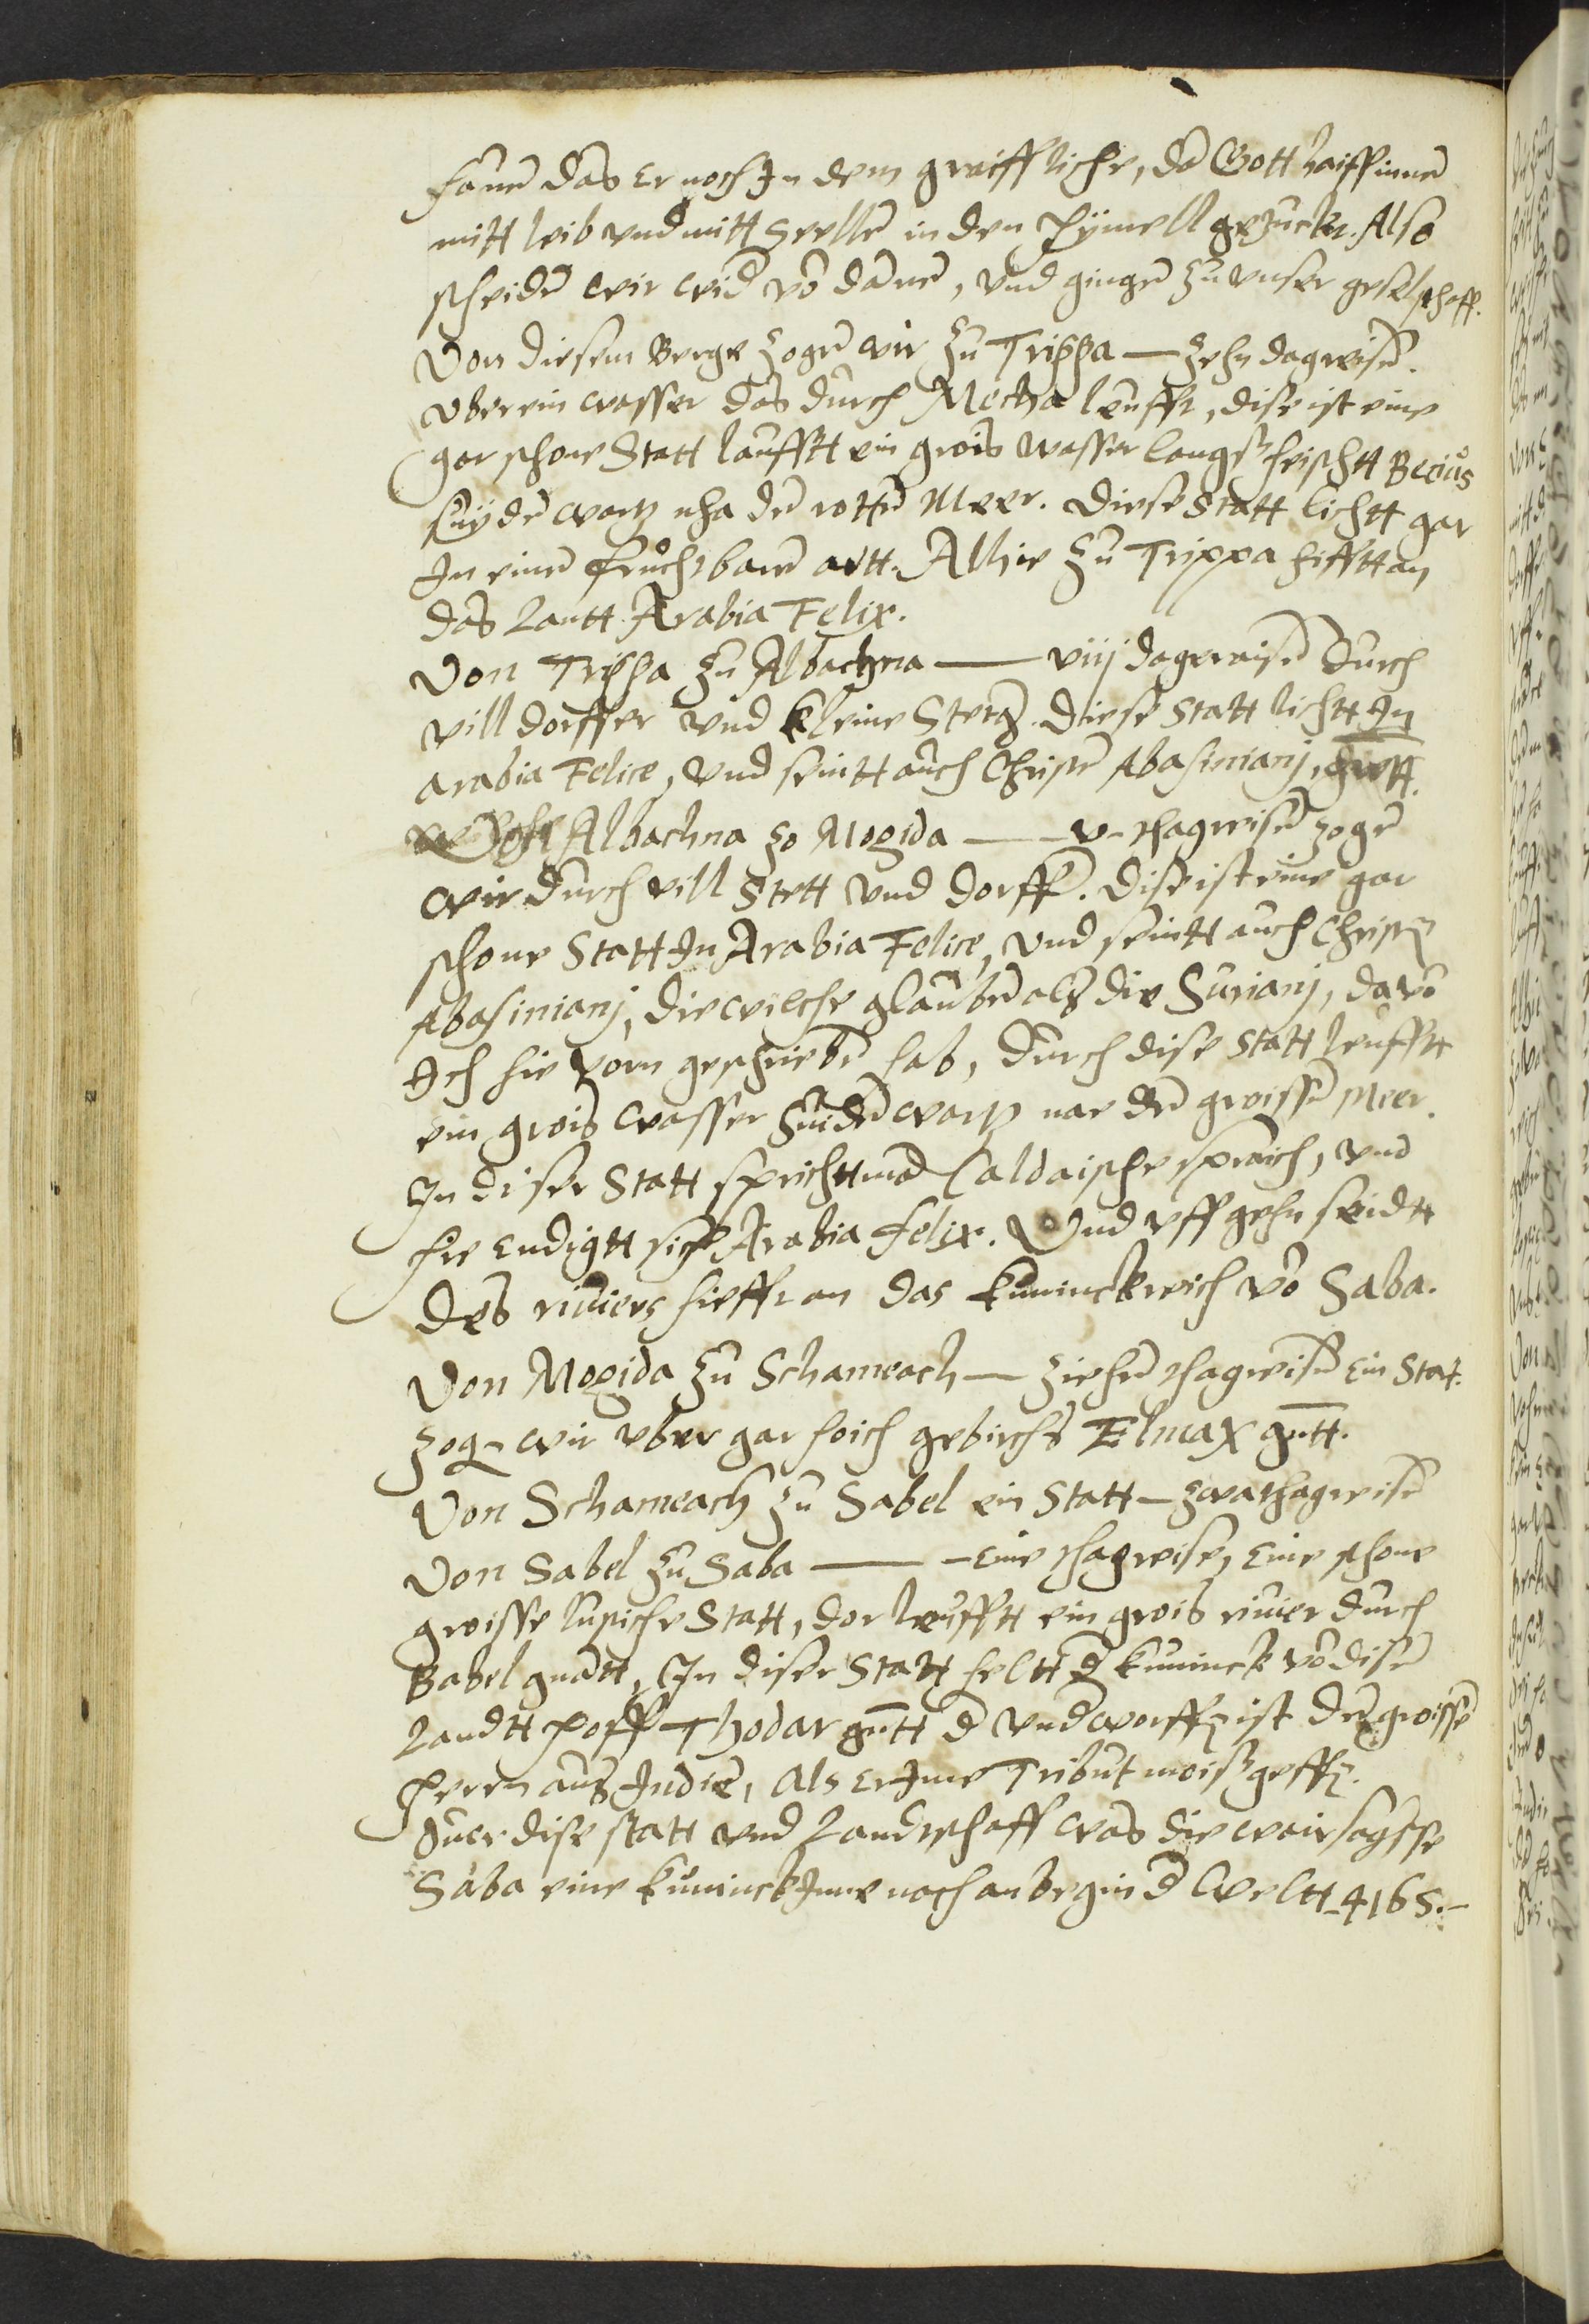 sanen das Er noch In dem graiff lichtt, da Gott haiff innen
mitt leib vnd mitt Seellen in den Hÿmell gezuckt. Also
scheiden wir wider von dannen, vnd gingen zu vnser geselschaff.
Von diesem Berge zogen wir zu Trippa — zehn dagreisen.
vber ein wasser das durch Mecha leufft, dise ist eine
gar schone Statt laufftt ein grois wasser langst heischtt Becius
suyden wartz nha den rotten Meer. Diese Statt lichtt gar
In einen fruchtbaren artt. Alhie zu Trippa hifftt an
das Lantt Arabia Felix.
Von Trippa zu Albachna — viij dagreisen durch
vill dorffer vnd kleine Stetz. Diese Statt lichtt In
arabia Felice, vnd seintt auch Christen Abasinianj, gnātt.
Albachna zo Mogida — v- thagreisen zogen
wir durch vill Stett vnd dorffer. Dise ist eine gar
schone Statt In Arabia Felice, vnd seintt auch Christen
Abasinianj, die welche glauben als die Surianj, da von
Ich hie vorn geschrieben hab, durch dise Statt leufftt
ein grois wasser Suiden wartz nae den groissen Meer.
In diser Statt sprichtt man Caldaische spraich, vnd
hie endigtt sich Arabia felix. Vnd vff gehn seidtt
des riuiers hiefft an das kuninckreich von Saba.
Von Mogida zu Schameach — ziehen thagreisen Ein Statt.
zogen wir vber gar hoich gebirchs Elmax gnātt.
Von Schameach zu Sabel ein Statt — zwa thagreisen
Von Sabel zu Saba — Eine thagreise, Eine schone
groisse lustiche Statt, dar leufftt ein grois riuier durch
Babel gnātt, In diser Statt heltt der kuninck von disen
Landtt hoff Thodar gnātt der vnderworffen ist den groissen
Herrn aus Indien, als Er Ime Tribut mois geffen.
Vuer dise statt vnd Landtschaff was die wairsagsse
Saba eine kuninckInne nach anbegin der Weltt 4165.-